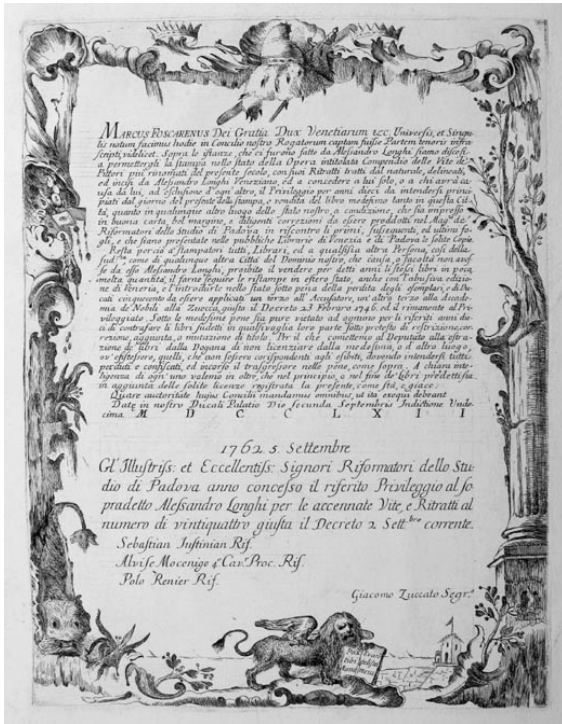 MARCUS FOSCARENUS Dei Gratia Dux Venetiarum &cc. Universis, et Singu-
lis notum facimus hodie in Concilio nostro Rogatorum captam fuisse Partem tenoris infra-
scripti, videlicet. Sopra le istanze, che ci furono fatte da Alessandro Longhi siamo discesi
a permettergli la stampa nello stato della Opera intitolata Compendio delle Vite de'
Pittori più rinomati del presente secolo, con suoi Ritratti tratti dal naturale, delineati,
ed incisi da Alessandro Longhi Veneziano, ed a concedere a lui solo, o a chi avrà ca-
usa da lui, ad esclusione d'ogn'altro, il Privilegio per anni dieci da intendersi princi-
piati dal giorno del presente della stampa, e vendita del libro medesimo tanto in questa Cit-
tà, quanto in qualunque altro luogo dello stato nostro, a condizione, che sia impresso
in buona carta, bel margine, e diligenti correzioni da essere prodotti nel Mag.to de'
Riformatori dello Studio di Padova in riscontro li primi, susseguenti, ed ultimi fo-
gli, e che siano presentate nelle pubbliche Librarie di Venezia e di Padova le solite Copie.
Resta perciò a' stampatori tutti, Librari, ed a qualsisia altra Persona, così della
sud.ta come di qualunque altra Città del Dominio nostro, che causa, o facoltà non aves-
se da esso Alessandro Longhi, proibito il vendere per detti anni li stessi libri in poca,
molta quantità, il farne seguire le ristampe in estero stato, anche con l'abusiva edizio-
ne di Venezia, e l'introdurle nello stato sotto pena della perdita degli esemplari, e di Du-
cati cinquecento da essere applicati un terzo all'Accusatore, un'altro terzo alla Acade-
mia de Nobili alla Zuecca, giusta il Decreto 23 Febraro 1746, ed il rimanente al Pri-
vilegiato. Sotto le medesime pene sia pure vietato ad ognuno per li riferiti anni die-
ci di contrafare li libri sudetti in qualsivoglia loro parte sotto pretesto di restrizione, cor-
rezione, aggiunta, o mutazione di titolo. Per il che commettemo al Deputato alla estra-
zione de' libri dalla Dogana di non licenziare dalla medesima, o d'altro luogo,
ov'esistessero, quelli, che non fossero corrispondenti agli esibiti, dovendo intendersi tutti
perduti e confiscati, ed incorso il trasgressore nelle pene, come sopra. A chiara inte-
ligenza di ogn'uno volemo in oltre, che nel principio, o nel fine de' Libri predetti sia
in aggiunta delle solite licenze registrata la presente, come stà, e giace:
Quare auctoritate hujus Concilii mandamus omnibus, ut ita exequi debeant
Date in nostro Ducali Palatio Die secunda Septembris Indictione Unde-
cima M D C C L X I I
1762 5. Settembre
Gl'Illustriss: et Eccellentiss: Signori Riformatori dello Stu-
dio di Padova anno concesso il riferito Privilegio al so
pradetto Alessandro Longhi per le accennate Vite, e Ritratti al
numero di vintiquattro giusta il Decreto 2 Sett.bre corrente.
Sebastian Justinian Rif.
Alvise Mocenigo 4.o Cav. Proc. Rif.
Polo Renier Rif.
Giacomo Zuccato Segr.o